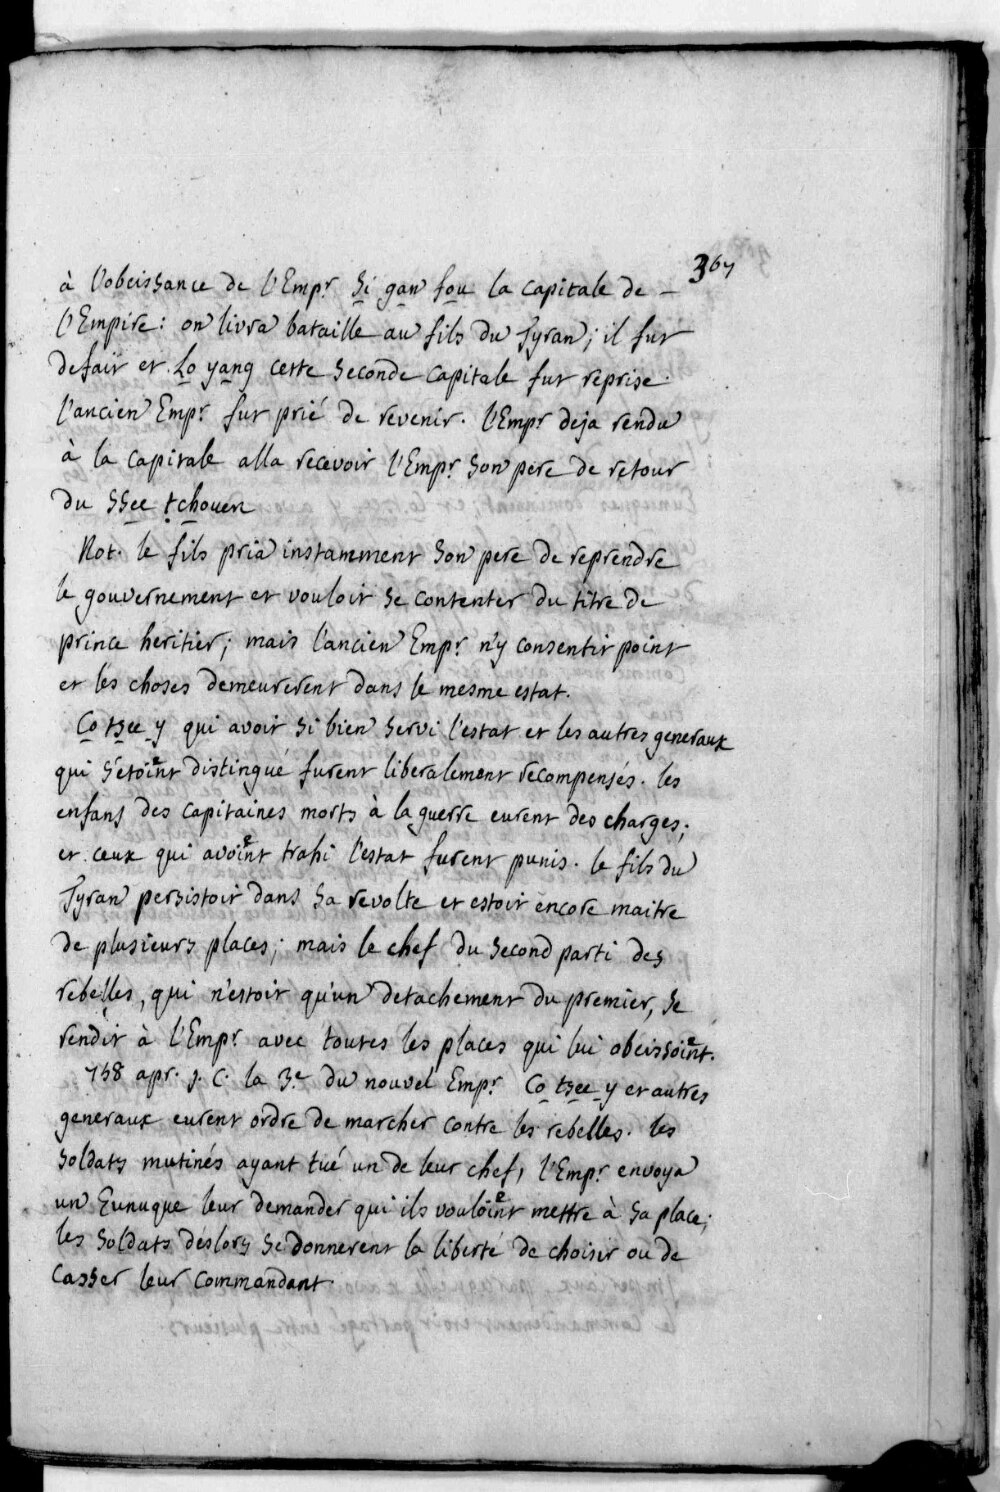 367
à l'obeissance de l'Empr. Si gan fou la capitale de –
l'Empire: on livra bataille au fils du Tyran; il fut
defait et Lo yang cette seconde capitale fut reprise.
l'ancien Empr. fut prié de revenir. l'Empr. deja rendu
à la capitale alla recevoir l'Empr. son pere de retour
du ssee tchouen
Not. le fils pria instamment son pere de reprendre
le gouvernement et vouloit se contenter du titre de
prince heritier; mais l'ancien Empr. n'y consentit point
et les choses demeurerent dans le mesme estat.
Co tsee y qui avoit si bien servi l'estat et les autres generaux
qui s'etoient distingué furent liberalement recompensés. les
enfans des capitaines morts à la guerre eurent des charges;
et ceux qui avoient trahi l'estat furent punis. le fils du
Tyran persistoit dans sa revolte et estoit encore maitre
de plusieurs places; mais le chef du second parti des
rebelles, qui n'estoit qu'un detachement du premier, se
rendit à l'Empr. avec toutes les places qui lui obeissoient.
758 apr. J. C. la 3.e du nouvel Empr. Co tsee y et autres
generaux eurent ordre de marcher contre les rebelles. les
soldats mutinés ayant tué un de leur chef, l'Empr. envoya
un Eunuque leur demander qui ils vouloient mettre à sa place;
les soldats déslors se donnerent la liberté de choisir ou de
casser leur commandant